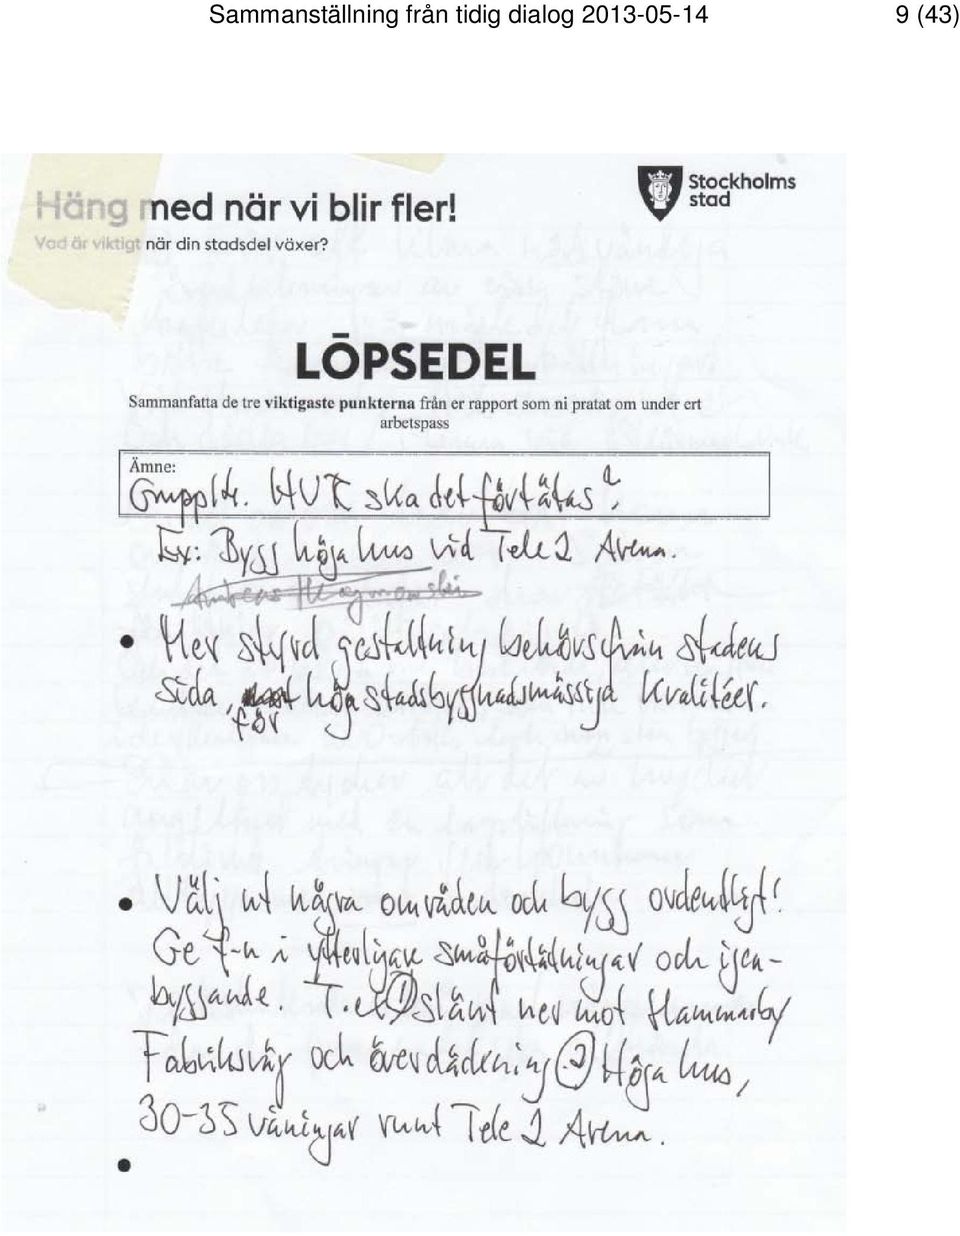 Sammanställning från tidig dialog 2013-05-14 9 (43)
Häng med när vi blir fler!
Stockholms stad
Vad är viktigt när din stadsdel växer?
LÖPSEDEL
Sammanfatta de tre viktigaste punkterna från er rapport som ni pratat om under ert
arbetspass
Ämne:
HUR ska det förtätas?
Ex: Bygg höga hus vid Tele 2 Arena.
• Mer styrd gestaltning behövs från stadens
sida, för hög stadsbyggnadsmässiga kvalitéer.
• Välj ut några områden och bygg ordentligt!
Ge f-n i ytterligare småförtätningar och igen-
byggande. T.ex ① slänt ner mot Hammarby
Fabriksväg och överdäckning ② Höga hus,
30-35 våningar runt Tele 2 Arena.
•